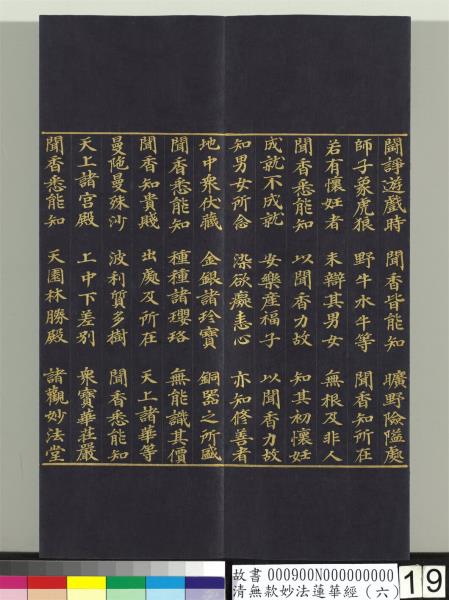 鬪諍遊戲時 聞香皆能知 曠野險隘處
師子象虎狼 野牛水牛等 聞香知所在
若有懷妊者 未辯其男女 無根及非人
聞香悉能知 以聞香力故 知其初懷妊
成就不成就 安樂產福子 以聞香力故
知男女所念 染欲癡恚心 亦知修善者
地中衆伏藏 金銀諸珍寶 銅器之所盛
聞香悉能知 種種諸瓔珞 無能識其價
聞香知貴賤 出處及所在 天上諸華等
曼陁曼殊沙 波利質多樹 聞香悉能知
天上諸宮殿 上中下差別 衆寶華莊嚴
聞香悉能知 天園林勝殿 諸觀妙法堂
故書 000900N000000000
清無款妙法蓮華經（六）
19